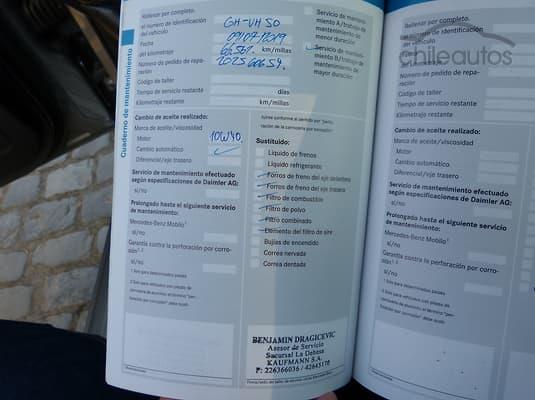 Cuaderno de mantenimiento
Rellenar por completo.
el número de identificación
del vehículo
GH-VH 50
Fecha
09/07/2019
del kilometraje
km/millas
Número de pedido de repa-
ración
Código de taller
Tiempo de servicio restante
días
Kilometraje restante
km/millas
Servicio de mantení-
miento A/trabajo de
mantenimiento de
menor duración
Servicio de manteni-
miento B/trabajo de
mantenimiento de
mayor duración
Cambio de aceite realizado:
Marca de aceite/viscosidad
Motor
10W40.
Cambio automático
Diferencial/eje trasero
Servicio de mantenimiento efectuado
según especificaciones de Daimler AG:
sí/no
Prolongado hasta el siguiente servicio
de mantenimiento:
Mercedes-Benz Mobilo¹
sí/no
Garantía contra la perforación por corro-
sión
sí/no
1 Sólo para determinados países
Sustituido:
Líquido de frenos
Líquido refrigerante
Forros de freno del eje delantero
Forros de freno del eje trasero
Filtro de combustible
Filtro de polvo
Filtro combinado
Elemento del filtro de aire
Bujías de encendido
Correa nervada
Correa dentada
BENJAMIN DRAGICEVIC
Asesor de Servicio
Sucursal La Dehesa
KAUFMANN S.A.
Rellenar por completo.
el número de identificación
del vehículo
Fecha
del kilometraje
Número de pedido de repa-
ración
Código de taller
Tiempo de servicio restante
Kilometraje restante
Cambio de aceite realizado:
Marca de aceite/viscosidad
Motor
Cambio automático
Diferencial/eje trasero
Servicio de mantenimiento efectuado
según especificaciones de Daimler AG:
sí/no
Prolongado hasta el siguiente servicio
de mantenimiento:
Mercedes-Benz Mobilo¹
sí/no
Garantía contra la perforación por corro-
sión
sí/no
1 Sólo para determinados países
chileautos